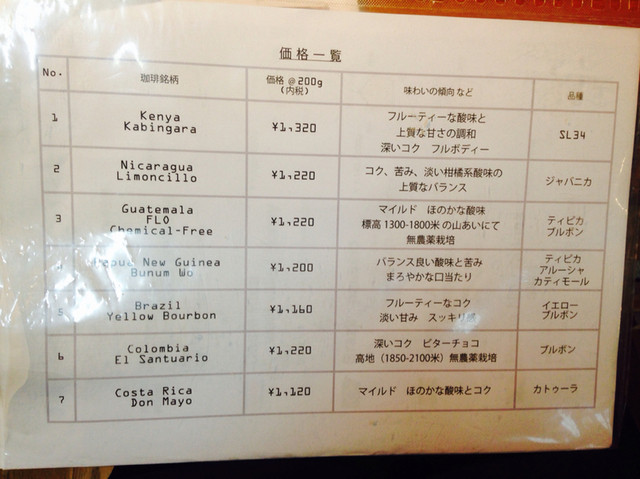 価格一覧
No. 珈琲銘柄 価格 @200g (内税) 味わいの傾向 など 品種
1 Kenya Kabingara ¥1,320 フルーティーな酸味と 上質な甘さの調和 深いコク フルボディー SL34
2 Nicaragua Limoncillo ¥1,220 コク、苦み、淡い柑橘系酸味の 上質なバランス ジャバニカ
3 Guatemala FLO Chemical-Free ¥1,220 マイルド ほのかな酸味 標高 1300-1800米 の山あいにて 無農薬栽培 ティピカ ブルボン
4 New Guinea Bunum Wo ¥1,200 バランス良い酸味と苦み まろやかな口当たり ティピカ アルーシャ カティモール
5 Brazil Yellow Bourbon ¥1,160 フルーティーなコク 淡い甘み スッキリ イエロー ブルボン
6 Colombia El Santuario ¥1,220 深いコク ビターチョコ 高地（1850-2100米）無農薬栽培 ブルボン
7 Costa Rica Don Mayo ¥1,120 マイルド ほのかな酸味とコク カトゥーラ